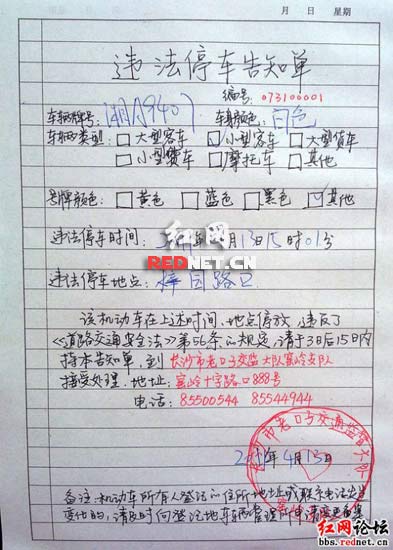 月 日 星期
违法停车告知单
编号: 073100001
车辆牌号: 湘A9407 车身颜色: 白色
车辆类型: 大型客车 小型客车 大型货车
小型货车 摩托车 其他
号牌颜色: 黄色 蓝色 黑色 其他
违法停车时间: 年 月13日15时01分
红网
REDNET.CN
违法停车地点: 园路口
该机动车在上述时间、地点停放,违反了
《道路交通安全法》第56条的规定,请于3日后15日内
持本告知单,到长沙市老口子交监大队窑岭支队
接受处理。地址: 窑岭十字路口888号
电话: 85500544 85544944
市老口子交通监督大队
2011年4月13日
备注:机动车所有人登记的住所地址或联系电话发生
变化的,请及时向登记地车辆管理所申请变更备案
红网论坛
bbs.rednet.cn